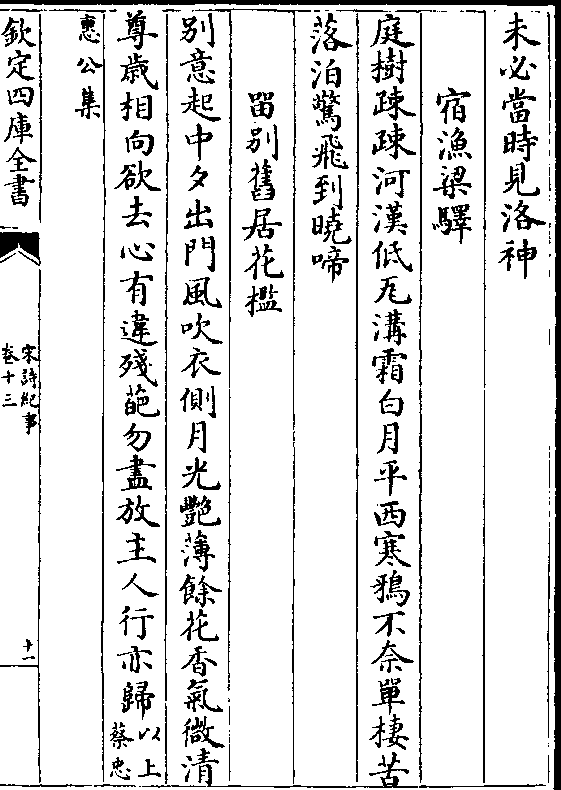 未必當時見洛神
宿漁梁驛
庭樹疎疎河漢低瓦溝霜白月平西寒鴉不奈單棲苦
落泊驚飛到曉啼
留別舊居花檻
別意起中夕出門風吹衣側月光艷薄餘花香氣微清
尊歳相向欲去心有違殘葩勿盡放主人行亦歸以上蔡忠
惠公集
欽定四庫全書
宋詩紀事
卷十三
十一